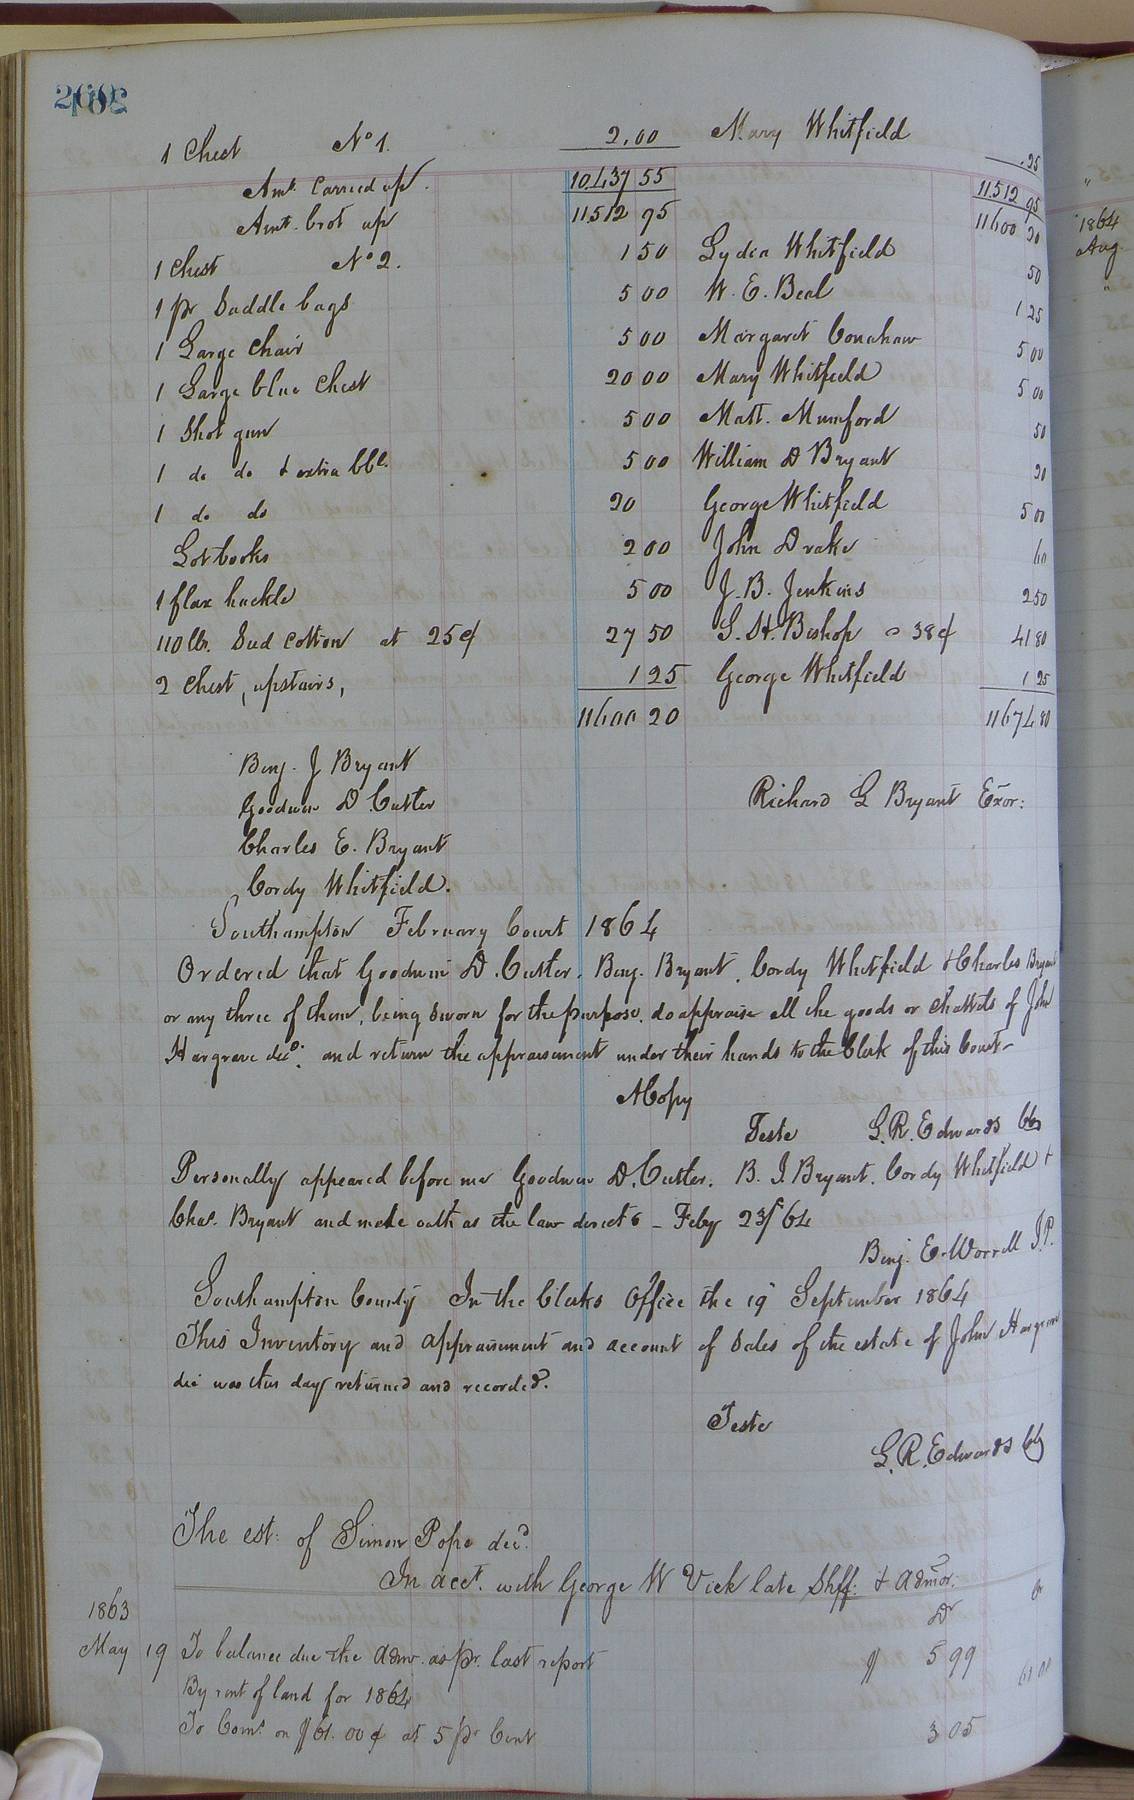 1 Chest No 1. 2.00 Mary Whitfield .25
Amt. Carried up. 10437 55 11512 95
Amt. brot up 11512 95 11600 20
1 Chest No 2. 1 50 Lydia Whitfield 50
1 pr Saddle bags 5 00 W. E. Beal 1 25
1 Large Chair 5 00 Margaret Councham 5 00
1 Large blue Chest 20 00 Mary Whitfield 5 00
1 Shot gun 5 00 Matt. Mumford 50
1 do do & extra bbl. 5 00 William D Bryant 20
1 do do 20 George Whitfield 5 00
Lot books 2 00 John Drake 60
1 flax hackle 5 00 J. B. Jenkins 2 50
110 lbs. Sud Cotton at 25¢ 27 50 S. H. Bishop @ 38¢ 41 80
2 Chest, upstairs, 1 25 George Whitfield 1 25
11600 20 11674 80
Benj. J Bryant
Goodwin D Cutler Richard G Bryant Exor:
Charles E. Bryant
Cordy Whitfield.
Southampton February Court 1864
Ordered that Goodwin D. Cutler, Benj. Bryant, Cordy Whitfield & Charles Bryant
or any three of them, being sworn for the purpose, do appraise all the goods or chattels of John
Hargrave decd. and return the appraisement under their hands to the Clerk of this Court-
A Copy
Teste L. R. Edwards Clk
Personally appeared before me Goodwin D. Cutler, B. J. Bryant, Cordy Whitfield &
Chas. Bryant and made oath as the law directs - Feby 23/64
Benj. E. Worrell J.P.
Southampton County In the Clerks Office the 19 September 1864
This Inventory and appraisement and account of Sales of the estate of John Hargrave
dec was this day returned and recorded.
Teste
L. R. Edwards Clk
The est: of Simon Pope decd.
In acct. with George W Vick late Shff: & Admor.
1863 Dr Cr
May 19 To balance due the Admr. as pr. last report $ 5 99
By rent of land for 1864 61 00
To Coms. on $61.00¢ at 5 pr Cent 3 05
1864
Aug